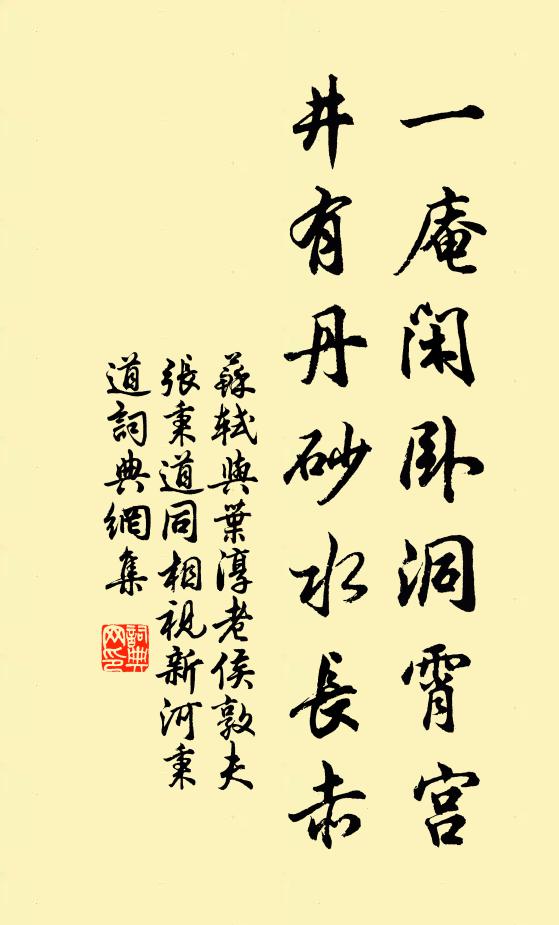 一庵閑卧洞霄宮
井有丹砂水長赤
蘇軾與葉淳老侯敦夫
張秉道同相視新河秉
道詞典網集
詞典
网印